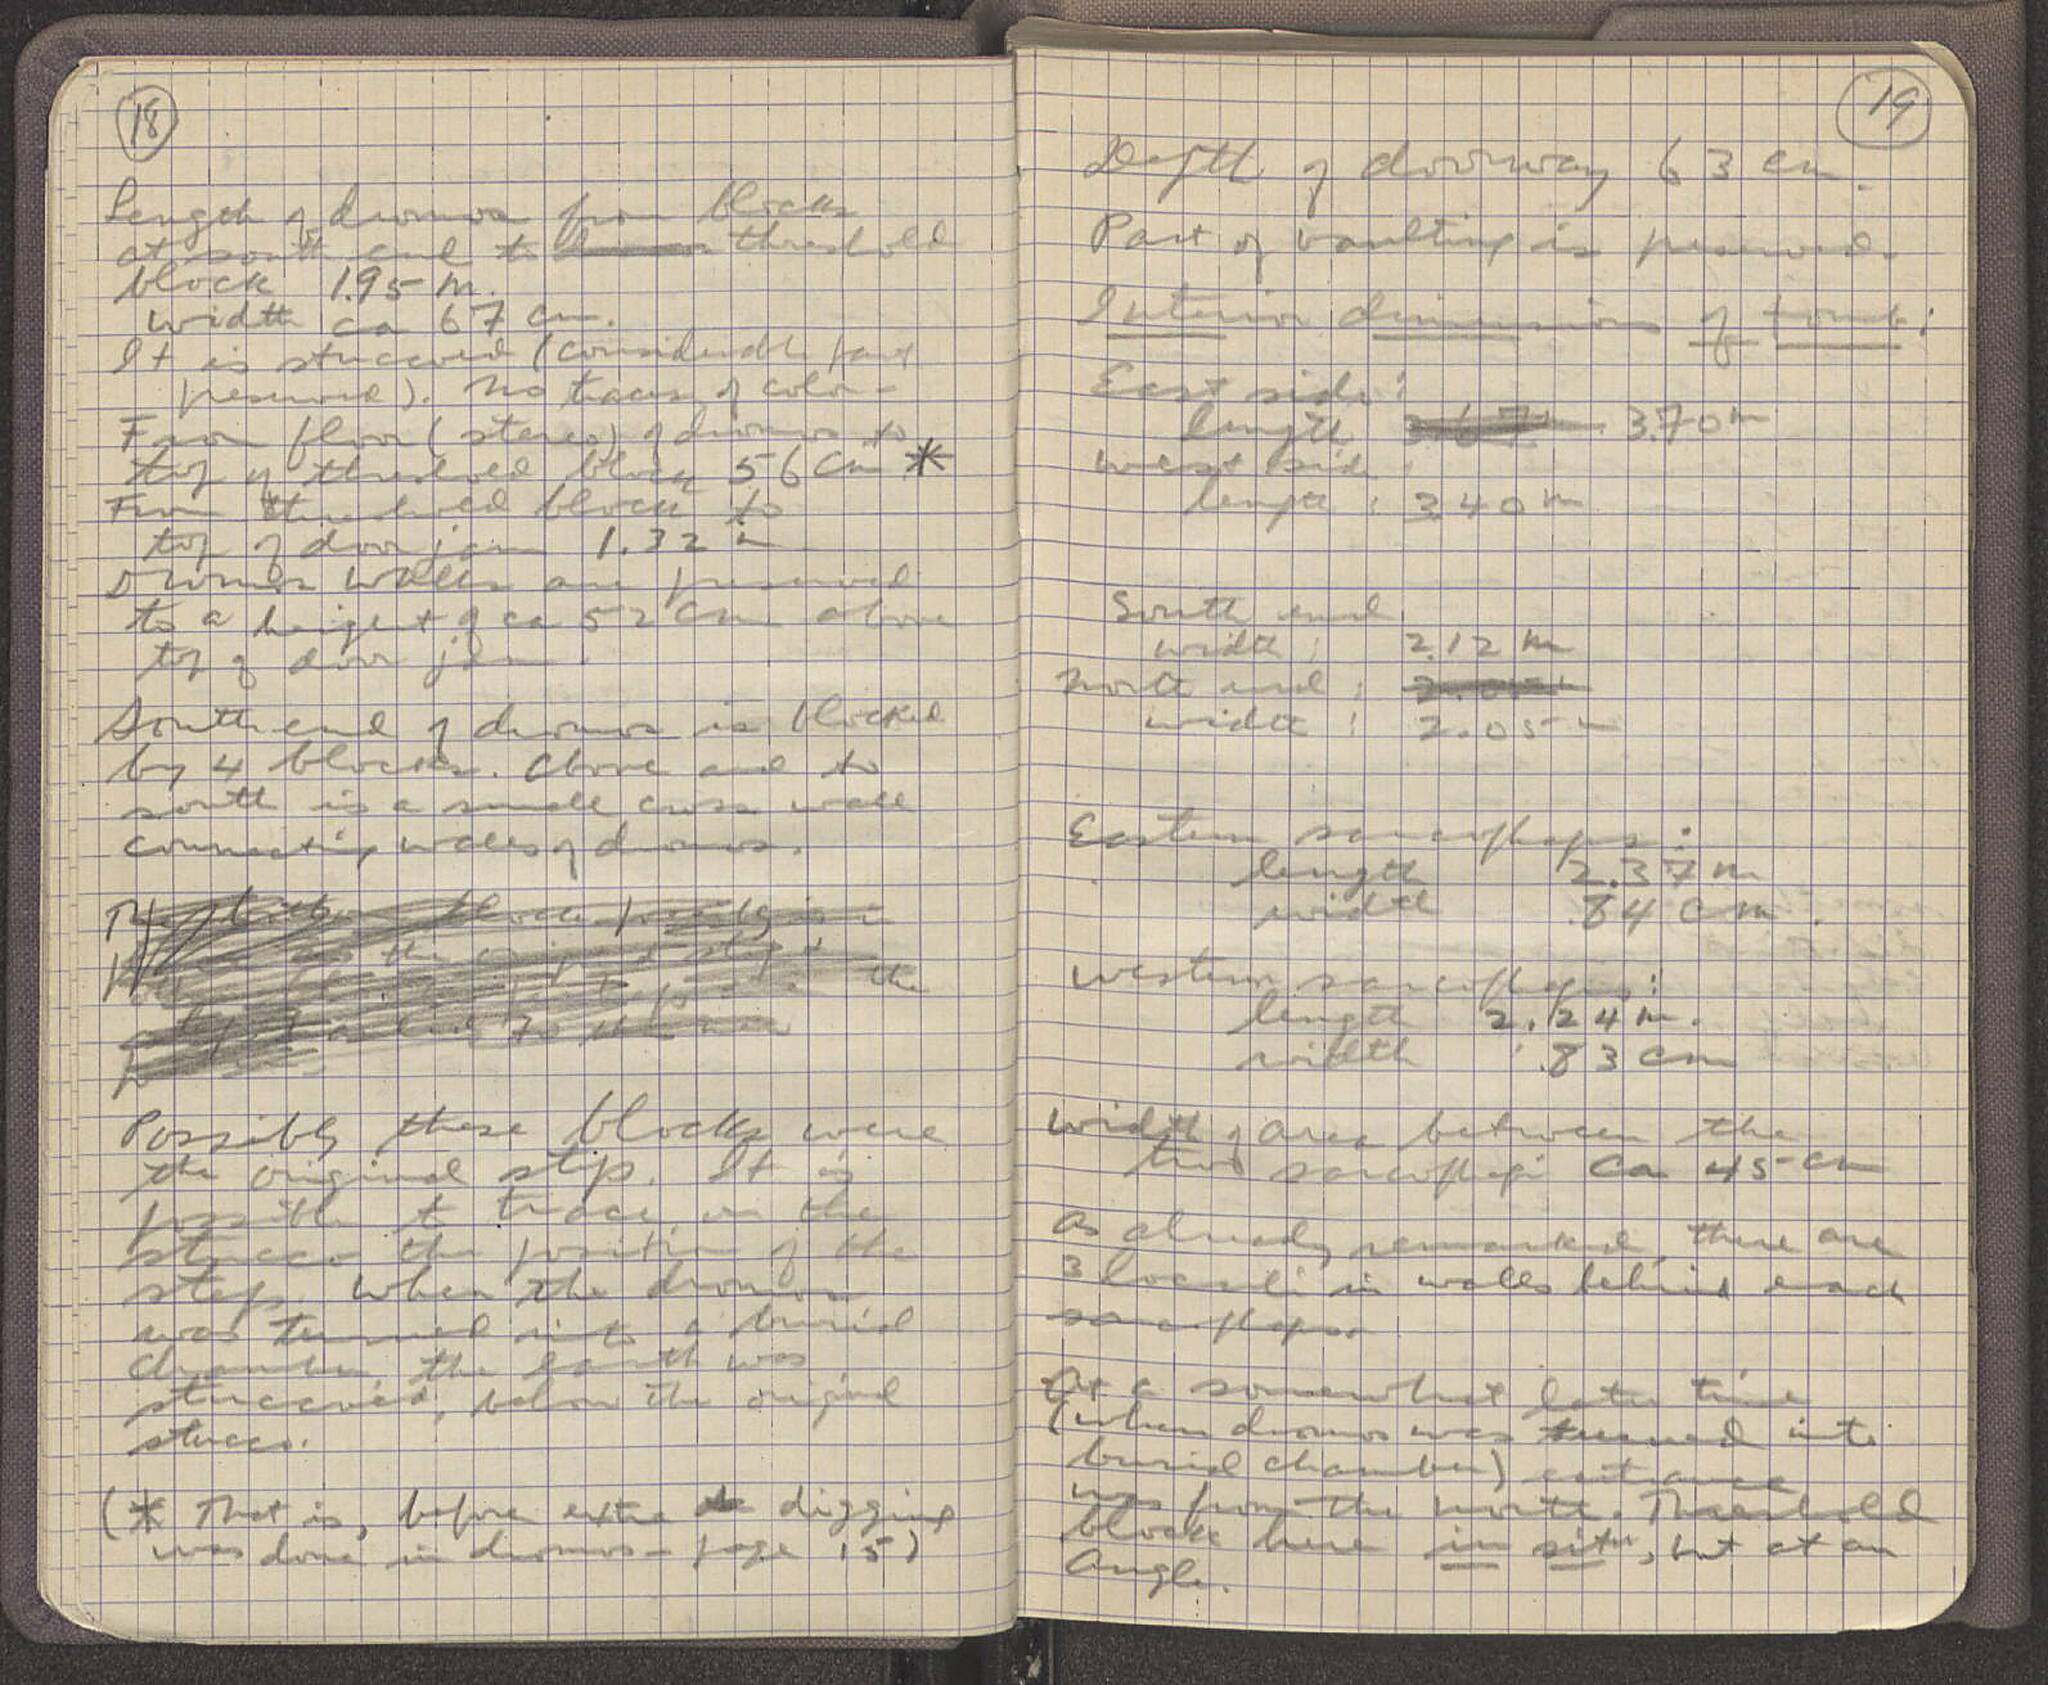 18
Length of dromos from blocks
at south end to threshold
block 1.95 m.
width ca 67 cm.
It is stuccoed (considerable part
preserved). No traces of color.
From floor (stereo) of dromos to
top of threshold block 56 cm *
From threshold block to
top of door jam 1.32 m
Dromos walls are preserved
to a height of ca 52 cm above
top of door jam.
South end of dromos is blocked
by 4 blocks. Above and to
south is a small cross wall
connecting walls of dromos.
Possibly these blocks were
the original step. It is
possible to trace, on the
stucco the position of the
step. When the dromos
was turned into a burial
chamber, the earth was
stuccoed, below the original
stucco.
(* That is, before extra digging
was done in dromos - page 15)
19
Depth of doorway 63 cm.
Part of vaulting is preserved.
Interior dimensions of tomb:
East side:
length 3.70 m
West side
length: 3.40 m
South end
width: 2.12 m
North end:
width: 2.05 m
Eastern sarcophagus:
length 2.37 m
width .84 cm.
Western sarcophagus:
length 2.24 m.
width .83 cm
Width of area between the
two sarcophagi ca 45 cm
As already remarked, there are
3 loculi in walls behind each
sarcophagus.
At a somewhat later time
(when dromos was turned into
burial chamber) entrance
was from the north. Threshold
block here in situ, but at an
angle.